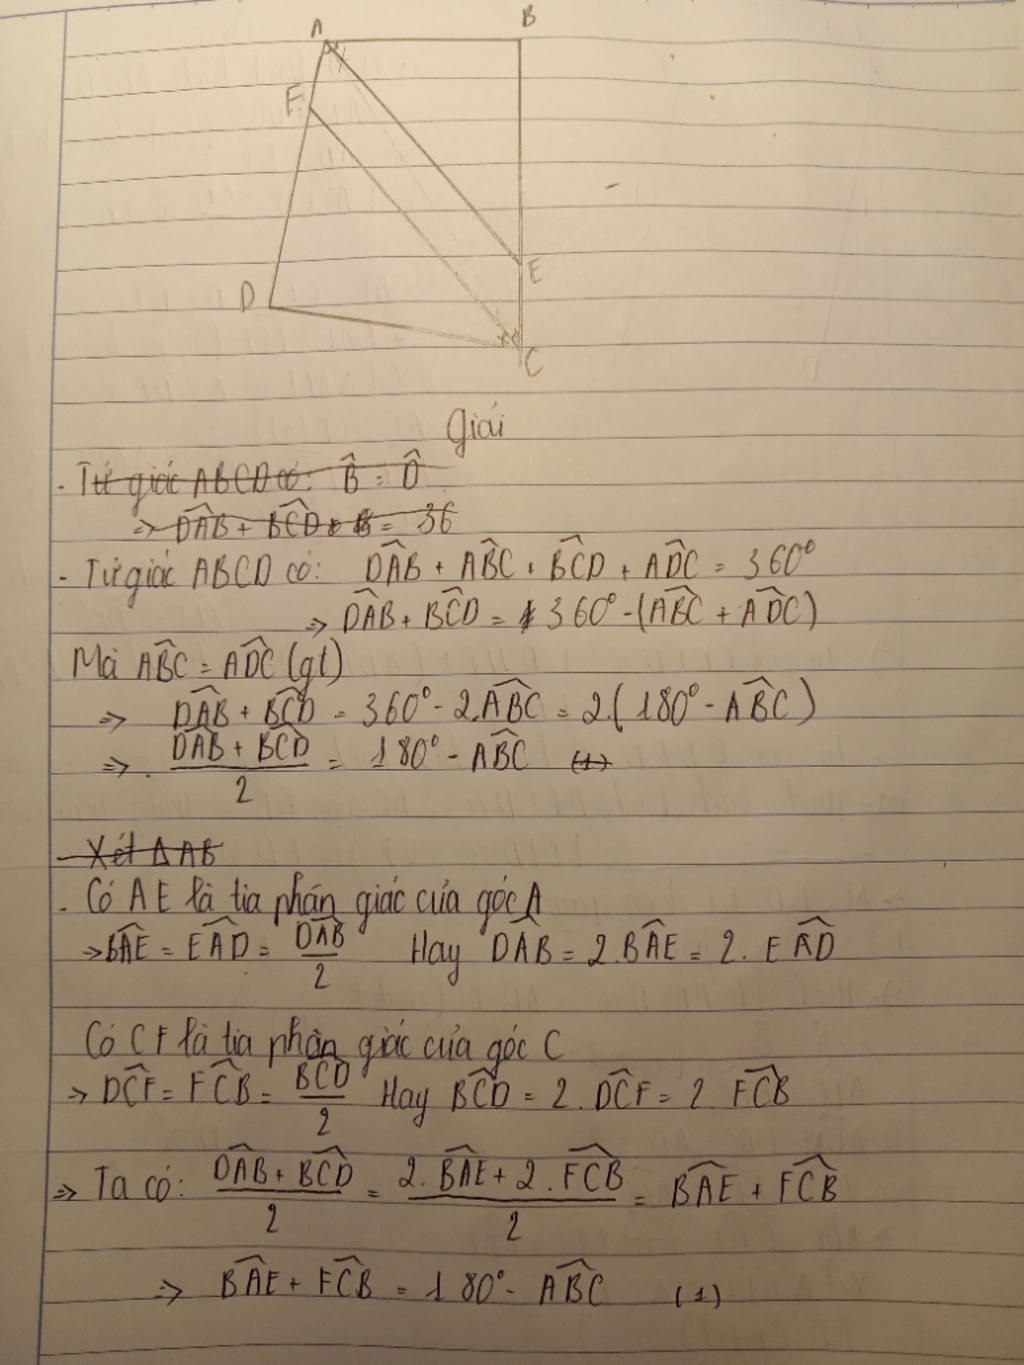 A B
F
E
D
C
Giải
- Tứ giác ABCD có: B̂ = D̂
=> DÂB + BĈD + B = 36
- Tứ giác ABCD có: DÂB + AB̂C + BĈD + AD̂C = 360°
=> DÂB + BĈD = 360° - (AB̂C + AD̂C)
Mà AB̂C = AD̂C (gt)
=> DÂB + BĈD = 360° - 2.AB̂C = 2.(180° - AB̂C)
=> (DÂB + BĈD)/2 = 180° - AB̂C (1)
- Xét Δ AB
- Có AE là tia phân giác của góc A
=> BÂE = EÂD = DÂB/2 Hay DÂB = 2.BÂE = 2.EÂD
Có CF là tia phân giác của góc C
=> DĈF = FĈB = BĈD/2 Hay BĈD = 2.DĈF = 2.FĈB
=> Ta có: (DÂB + BĈD)/2 = (2.BÂE + 2.FĈB)/2 = BÂE + FĈB
=> BÂE + FĈB = 180° - AB̂C (1)